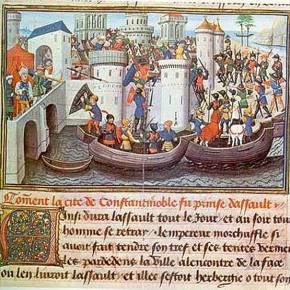 Coment la cite de Constantinoble fu prinse dassault
Ainsi dura lassault tout le Jour et au soir tout
homme se retray lempereur morchuffle si
auoit fait tendre son tref et ses tentes vermei
les pardedens la ville alencontre de la face
ou len liuroit lassault et illec sestoit herbergie o tout son